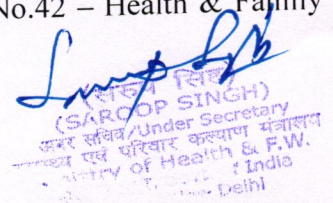 No.42 – Health & Family
(सरूप सिंह)
(SAROOP SINGH)
अवर सचिव/Under Secretary
एवं परिवार कल्याण मंत्रालय
of Health & F.W.
India
Delhi